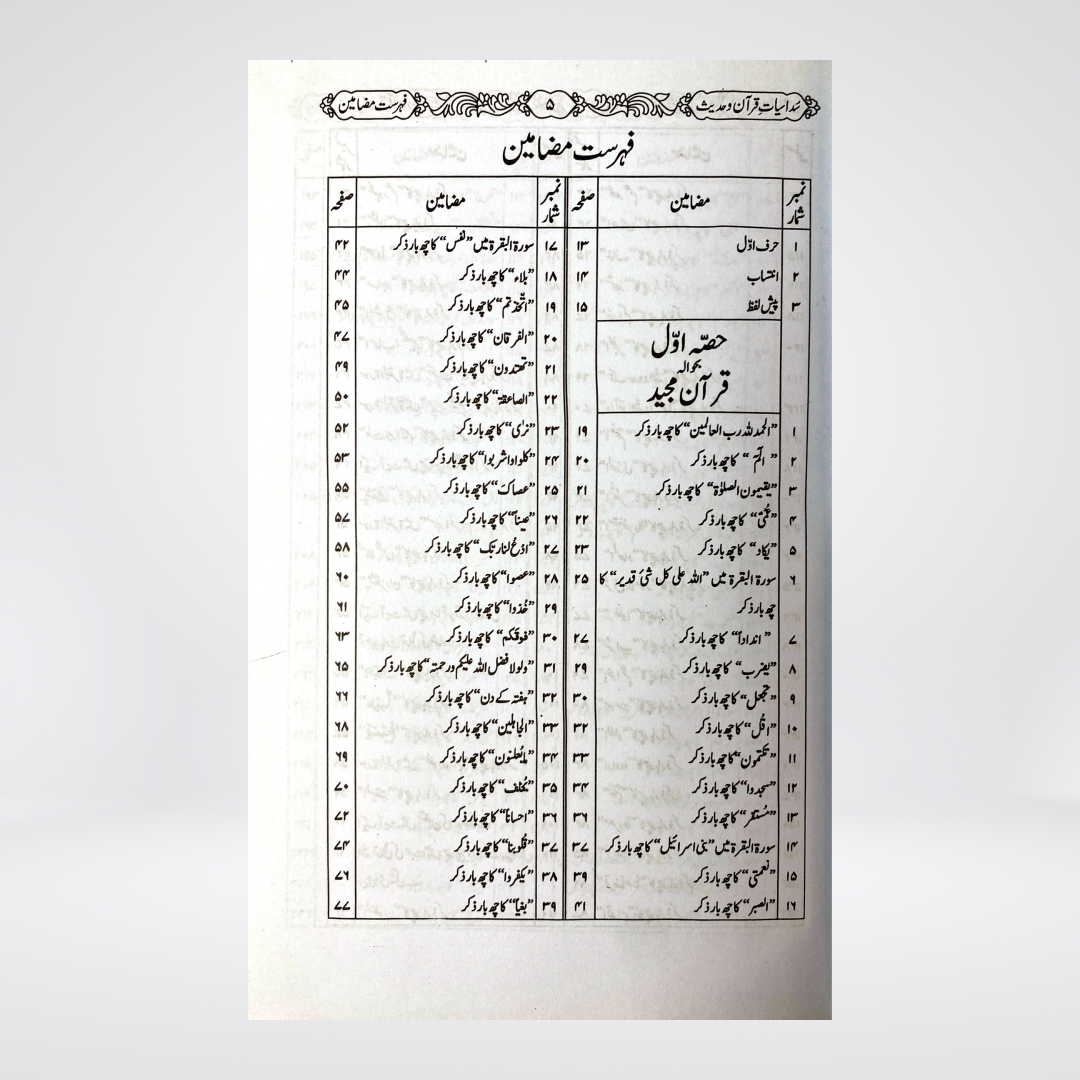 سداسیاتِ قرآن و حدیث
۵
فہرست مضامین
فہرست مضامین
نمبر شمار مضامین صفحہ
۱ حرف اوّل ۱۳
۲ انتساب ۱۴
۳ پیش لفظ ۱۵
حصّہ اوّل
بحوالہ
قرآن مجید
۱ ”الحمد للہ رب العالمین“ کا چھ بار ذکر ۱۹
۲ ”الٓمّٓ“ کا چھ بار ذکر ۲۰
۳ ”یقیمون الصلوٰۃ“ کا چھ بار ذکر ۲۱
۴ ”عُمْیٌ“ کا چھ بار ذکر ۲۲
۵ ”یکاد“ کا چھ بار ذکر ۲۳
۶ سورۃ البقرۃ میں ”اللہ علی کل شئ قدیر“ کا ۲۵
چھ بار ذکر
۷ ”انداداً“ کا چھ بار ذکر ۲۷
۸ ”یضرب“ کا چھ بار ذکر ۲۹
۹ ”تجعل“ کا چھ بار ذکر ۳۰
۱۰ ”اقُل“ کا چھ بار ذکر ۳۲
۱۱ ”تکتمون“ کا چھ بار ذکر ۳۳
۱۲ ”سجدوا“ کا چھ بار ذکر ۳۴
۱۳ ”مُستقر“ کا چھ بار ذکر ۳۶
۱۴ سورۃ البقرۃ میں ”بنی اسرائیل“ کا چھ بار ذکر ۳۷
۱۵ ”نعمتی“ کا چھ بار ذکر ۳۹
۱۶ ”الصبر“ کا چھ بار ذکر ۴۱
نمبر شمار مضامین صفحہ
۱۷ سورۃ البقرۃ میں ”نفس“ کا چھ بار ذکر ۴۲
۱۸ ”بلاء“ کا چھ بار ذکر ۴۴
۱۹ ”اتّخذتم“ کا چھ بار ذکر ۴۵
۲۰ ”الفرقان“ کا چھ بار ذکر ۴۷
۲۱ ”تھتدون“ کا چھ بار ذکر ۴۹
۲۲ ”الصاعقۃ“ کا چھ بار ذکر ۵۰
۲۳ ”نرٰی“ کا چھ بار ذکر ۵۲
۲۴ ”کلوا واشربوا“ کا چھ بار ذکر ۵۳
۲۵ ”عصاکَ“ کا چھ بار ذکر ۵۵
۲۶ ”عیناً“ کا چھ بار ذکر ۵۷
۲۷ ”ادْعُ لنا ربّک“ کا چھ بار ذکر ۵۸
۲۸ ”عصوا“ کا چھ بار ذکر ۶۰
۲۹ ”خُذوا“ کا چھ بار ذکر ۶۱
۳۰ ”فوقکم“ کا چھ بار ذکر ۶۳
۳۱ ”ولولا فضل اللہ علیکم ورحمتہ“ کا چھ بار ذکر ۶۵
۳۲ ”ہفتہ کے دن“ کا چھ بار ذکر ۶۶
۳۳ ”الجاہلین“ کا چھ بار ذکر ۶۸
۳۴ ”مایُعلنون“ کا چھ بار ذکر ۶۹
۳۵ ”یُخلف“ کا چھ بار ذکر ۷۰
۳۶ ”احساناً“ کا چھ بار ذکر ۷۲
۳۷ ”قُلوبنا“ کا چھ بار ذکر ۷۴
۳۸ ”یکفروا“ کا چھ بار ذکر ۷۶
۳۹ ”بغیاً“ کا چھ بار ذکر ۷۷